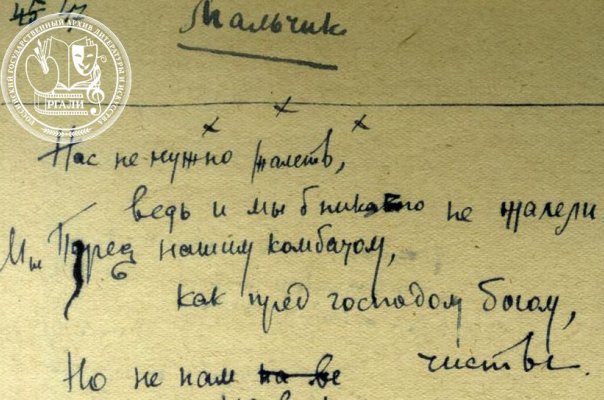 45
Мальчик
РОССИЙСКИЙ ГОСУДАРСТВЕННЫЙ АРХИВ ЛИТЕРАТУРЫ И ИСКУССТВА
РГАЛИ
х х х
Нас не нужно жалеть,
ведь и мы б никого не жалели
Мы пред нашим комбатом,
как пред господом богом,
чисты.
Но не нам на ве